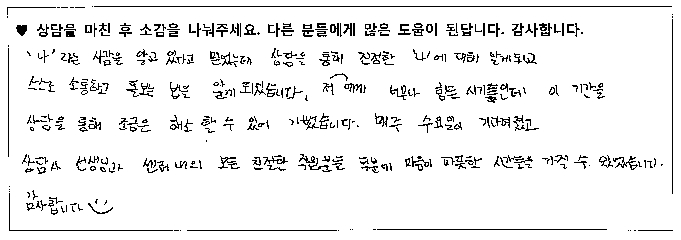 ♥ 상담을 마친 후 소감을 나눠주세요. 다른 분들에게 많은 도움이 된답니다. 감사합니다.
'나' 라는 사람을 알고 있다고 믿었는데 상담을 통해 진정한 '나'에 대해 알게되고
스스로 소통하고 돌보는 법을 알게 되었습니다. 저에게 너무나 힘든 시기였는데 이 기간을
상담을 통해 조금은 해소 할 수 있어 기뻤습니다. 매주 수요일이 기다려졌고
상담사 선생님과 센터 내의 모든 친절한 직원분들 덕분에 마음이 따뜻한 시간들을 가질 수 있었습니다.
감사합니다